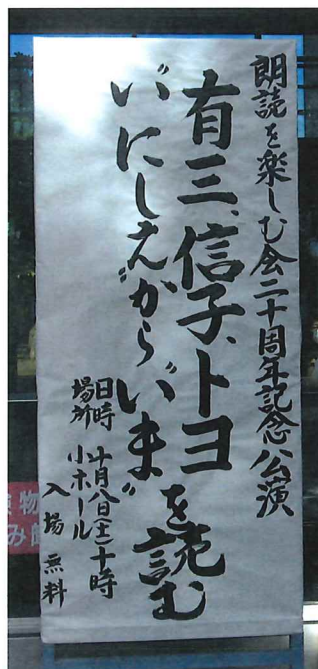 朗読を楽しむ会二十周年記念公演
有三、信子、トヨを読む
"いにしえ"から"いま"
日時 十月八日(土)十時
場所 小ホール
入場無料